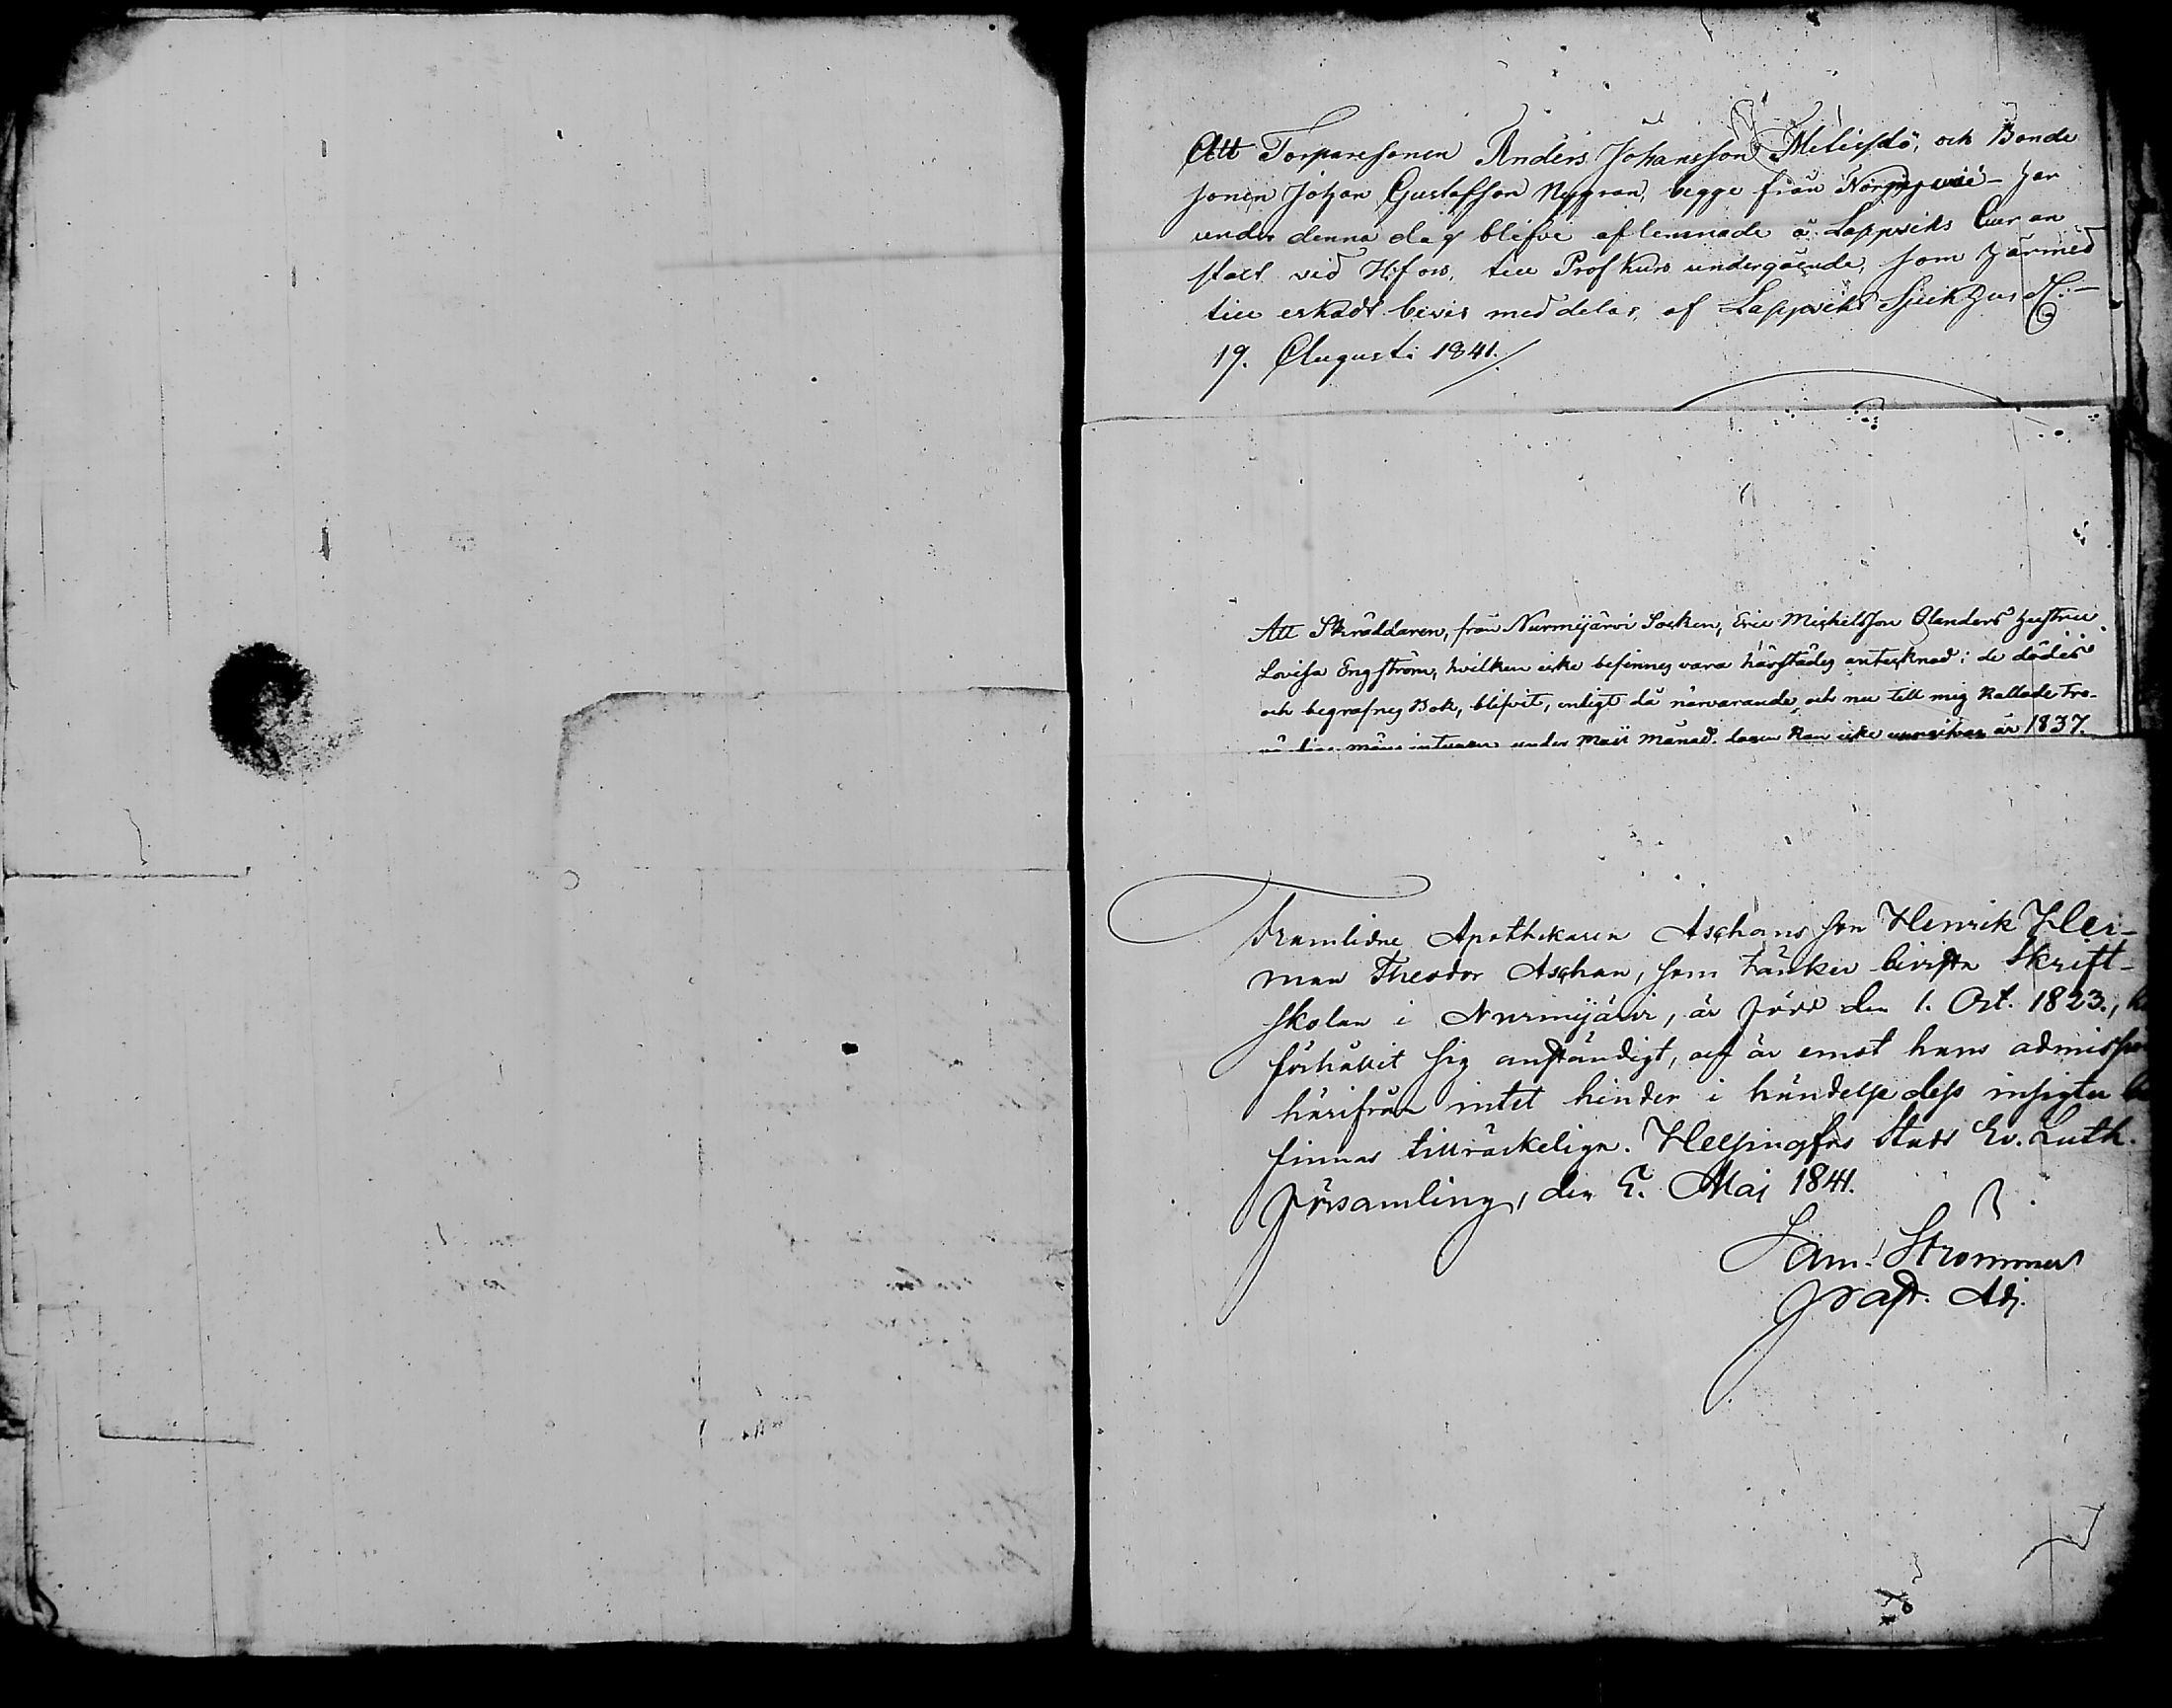 Att Torparesonen Anders Johansson Metislö, och Bonde
sonen Johan Gustafsson Nygran, begge från Nörmjervi - har
under denna dag blifvi aflemnade å Lappviks Curan
stalt vid H:fors, till Prof kurs undergående, som härmed
till erkädt bevis meddelas, af Lappviks Sjukhus
19. Augusti 1841.
Att Skräddaren, från Nurmijärvi Socken, Eric Michelsson Olanders hustru
Lovisa Engström, hvilken icke befinnes vara härstädes antecknad i de dödes
och begrafnes Bok, blifvit, enligt då närvarande, och nu till mig kallade tro-
mäns under Maii Månad. dagen kan icke år 1837.
Framlidne Apothekaren Aschans son Henrik Her-
man Theodor Aschan, som tänker bevista Skrift-
skolan i Nurmijärvi, är född den 1. Oct. 1823.,
förhållit sig anständigt, och är emot hans admission
härifrån intet hinder i händelse dess insigter be
finnas tillräckeliga. Helsingfors Stads Ev. Luth.
Församling, den 5. Maj 1841.
Sam. Strömmer
Past. Adj.